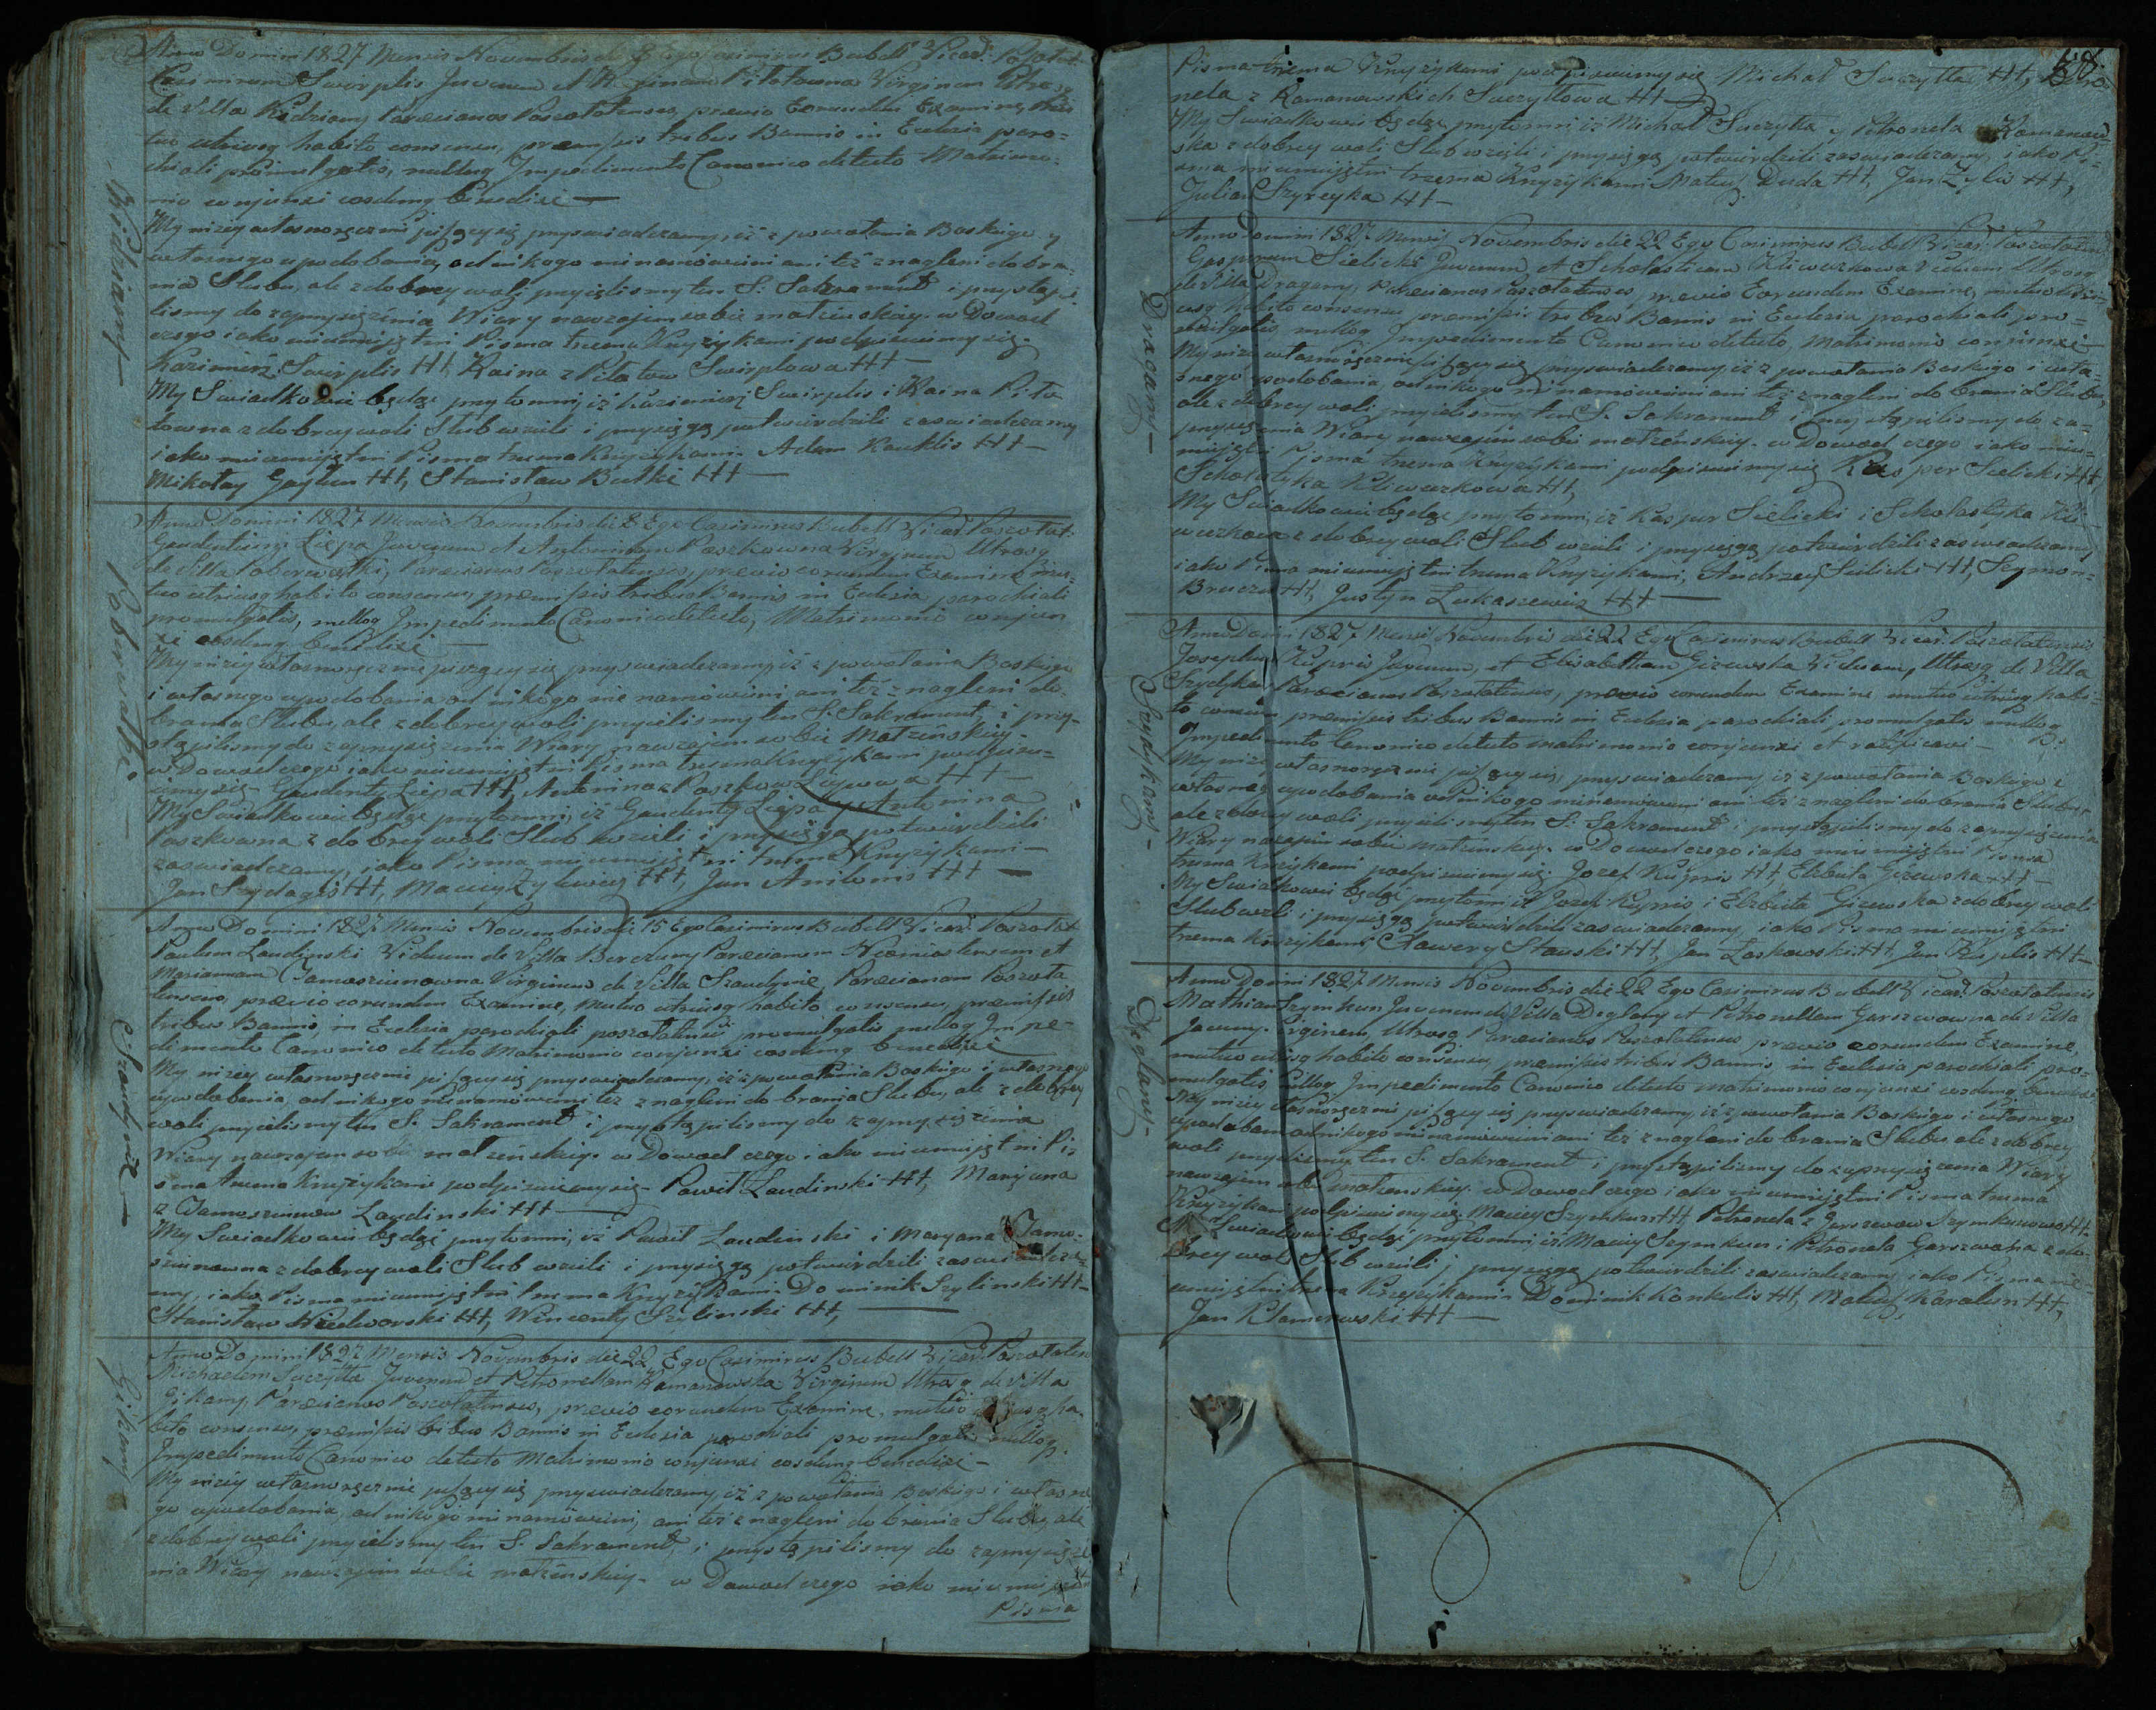 Kidziany
Anno Domini 1827 Mensis Novembris die 8 Ego Casimirus Bubell Vicar: Poszolat:
Casimirum Swirplis Juvenem et Reginam Pitotowna Virginem Utrosq
de Villa Kidziany Parœcianos Poszolatenses, prævio Eorundem Examine, Mu
tuo utriusq habito consensu, præmissis tribus Bannis in Eclesia paro=
chiali promulgatis, nulloq Impedimento Canonico detecto Matrimo=
nio conjunxi eosdemq benedixi —
My niżey własnoręcznie piszący się przyswiadczamy, iż z powołania Boskiego y
własnego upodobania, od nikogo nienamówieni ani też znagleni do bra=
nia Slubu, ale z dobrey woli przyięlismy ten S: Sakrament i przystąpi
lismy do zaprzysiężenia Wiary nawzajem sobie małżeńskiey. w Dowod
czego iako nieumieiętni Pisma trzema Krzyżykami podpisuiemy się.
Kazimierz Swirplis +++, Raina z Pitotow Swirplowa +++ —
My Swiadkowie będąc przytomni, iż Kazimierz Swirplis i Raina Pito
towna z dobrey woli Slub wzieli i przysięgą potwierdzili zaswiadczamy
iako nieumieiętni Pisma trzema Krzyżykami. Adam Kauklis +++ —
Mikołay Gaylun +++, Stanisław Butki +++ —
Poberwałki
Anno Domini 1827 Mensis Novembris die 8 Ego Casimirus Bubell Vicar: Poszolat:
Gaudentium Liepa Juvenem et Antoninam Paszkowna Virginem Utrosq
de Villa Poberwałki, Parœcianos Poszolatenses, prævio eorundem Examine mu=
tuo utriusq habito consensu, præmissis tribus Bannis in Eclesia parochiali
promulgatis, nulloq Impedimento Canonico detecto, Matrimonio conjun
xi eosdemq benedixi —
My niżey własnoręcznie piszący się przyswiadczamy, iż z powołania Boskiego
i własnego upodobania od nikogo nie namówieni, ani też znagleni do
brania Slubu, ale z dobrey woli przyielismy ten S: Sakrament, i przy=
stąpilismy do zaprzysiężenia Wiary nawzajem sobie Małżeńskiey.
w Dowod czego iako nieumieiętni Pisma trzema Krzyżykami podpisu=
iemy się. Gaudenty Liepa +++ Antonina z Paszkow Liepowa +++ —
My Swiadkowie będąc przytomni, iż Gaudenty Liepa y Antonina
Paszkowna z dobrey woli Slub wzieli i przysięgą potwierdzili
zaswiadczamy, iako Pisma nieumieiętni trzema Krzyżykami —
Jan Szydagis +++, Maciey Zylewicz +++, Jan Aniloms +++ —
Szaudynie
Anno Domini 1827 Mensis Novembris die 15 Ego Casimirus Bubell Vicar: Poszolat:
Paulum Laudinski Viduum de Villa Berdumy Parœcianum et
Mariannam Jamoszunowna Virginem de Villa Szaudynie, Parœcianam Poszola
tensem, prævio eorundem Examine, Mutuo utriusq habito consensu, præmissis
tribus Bannis, in Eclesia parochiali poszolatensi promulgatis nulloq Impe=
dimento Canonico detecto Matrimonio conjunxi eosdemq benedixi
My niżey własnoręcznie piszący się przyswiadczamy, iż z powołania Boskiego i własnego
upodobania, od nikogo nienamówieni też znagleni do brania Slubu, ale z dobrey
woli przyielismy ten S: Sakrament i przystąpilismy do zaprzysiężenia
Wiary nawzajem sobie małżeńskiey. w Dowod czego iako nieumieiętni Pi=
sma trzema Krzyżykami podpisuiemy się. Paweł Laudinski +++, Maryana
z Jamoszunow Laudinski +++ —
My Swiadkowie będąc przytomni, iż Paweł Laudinski i Maryana Jamo=
szunowna z dobrey woli Slub wzieli i przysięgą potwierdzili zaswiadcza=
my, iako Pisma nieumieiętni trzema Krzyżykami. Dominik Szylinski +++
Stanisław Niedworski +++, Wincenty Szylinski +++,
Gikany
Anno Domini 1827 Mensis Novembris die 22 Ego Casimirus Bubell Vicar: Poszolaten
Michaelem Suczyłła Juvenem et Petronellam Ramanowska Virginem Utrosq de Villa
Gikany, Parœcianos Poszolatenses, prævio eorundem Examine, mutuo utriusq ha=
bito consensu, præmissis tribus Bannis in Eclesia parochiali promulgatis nulloq
Impedimento Canonico detecto Matrimonio conjunxi eosdemq benedixi —
My niżey własnoręcznie piszący się przyswiadczamy, iż z powołania Boskiego i własne
go upodobania, od nikogo nie namówieni, ani też znagleni do brania Slubu, ale
z dobrey woli przyielismy ten S: Sakrament, i przystąpilismy do zaprzysięże
nia Wiary nawzajem sobie małżeńskiey. w Dowod czego iako nieumieiętni
Pisma
Pisma trzema Krzyżykami podpisuiemy się Michał Suczyłła +++, Petro=
nela z Ramanowskich Suczyłłowa +++ —
My Swiadkowie będąc przytomni iż Michał Suczyłła y Petronela Ramanow
ska z dobrey woli Slub wzięli i przysięgą potwierdzili zaswiadczamy, iako Pi=
sma nieumieiętni trzema Krzyżykami Mateusz Duda +++, Jan Zylis +++,
Julian Szyreyka +++ —
Dragany —
Anno Domini 1827 Mensis Novembris die 22 Ego Casimirus Bubell Vicar: Poszolaten
Gasparum Sielicki Juvenem, et Scholasticam Viduam Utrosq
de Villa Dragany, Parœcianos Poszolatenses, prævio Eorundem Examine, mutuo utri=
usq habito consensu præmissis tribus Bannis in Eclesia parochiali pro=
mulgatis nulloq Impedimento Canonico detecto, Matrimonio conjunxi —
My niżey własnoręcznie piszący się przyswiadczamy iż z powołania Boskiego i wła=
snego upodobania od nikogo nienamówieni ani też znagleni do brania Slubu,
ale z dobrey woli przyielismy ten S. Sakrament i przystąpilismy do za=
przysiężenia Wiary nawzajem sobie małżeńskiey. w Dowod czego iako nieu=
mieiętni Pisma trzema Krzyżykami podpisuiemy się Kasper Sielicki +++
Scholastyka +++,
My Swiadkowie będąc przytomni, iż Kasper Sielicki i Scholastyka
z dobrey woli Slub wzieli i przysięgą potwierdzili zaswiadczamy
iako Pisma nieumieiętni trzema Krzyżykami, Andrzey Sielicki +++, Szymon
+++, Justyn Lukaszewicz +++ —
Szydykany —
Anno Domini 1827 Mensis Novembris die 22 Ego Casimirus Bubell Vicar: Poszolatensis
Josephum Kupris Juvenem, et Elisabetham Gizewska Viduam, Utrosq de Villa
Szydykany Parœcianos Poszolatenses, prævio eorundem Examine mutuo utriusq habi=
to consensu præmissis tribus Bannis in Eclesia parochiali promulgatis nulloq
Impedimento Canonico detecto matrimonio conjunxi et ratificavi —
My niżey własnoręcznie piszący się, przyswiadczamy iż z powołania Boskiego i
własnego upodobania od nikogo nienamówieni ani też znagleni do brania Slubu
ale z dobrey woli przyielismy ten S: Sakrament i przystąpilismy do zaprzysiężenia
Wiary nawzajem sobie małżeńskiey. w Dowod czego iako nieumieiętni Pisma
trzema Krzyżykami podpisuiemy się. Jozef Kupris +++, Elżbieta Gizewska +++ —
My Swiadkowie będąc przytomni iż Jozef Kupris i Elżbieta Gizewska z dobrey woli
Slub wzieli i przysięgą potwierdzili zaswiadczamy, iako Pisma nieumieiętni
trzema Krzyżykami, Xawery Stauski +++, Jan Laskowski +++, Jan +++ —
Deglany —
Anno Domini 1827 Mensis Novembris die 22 Ego Casimirus Bubell Vicar: Poszolatensis
Mathiam Szymkun Juvenem de Villa Deglany et Petronellam Garszwowna de Villa
Virginem, Utrosq Parœcianos Poszolatenses prævio eorundem Examine,
mutuo utriusq habito consensu, præmissis tribus Bannis in Eclesia parochiali pro=
mulgatis, nulloq Impedimento Canonico detecto matrimonio conjunxi eosdemq benedixi
My niżey własnoręcznie piszący się przyswiadczamy, iż z powołania Boskiego i własnego
upodobania od nikogo nienamówieni ani też znagleni do brania Slubu ale z dobrey
woli przyielismy ten S. Sakrament i przystąpilismy do zaprzysiężenia Wiary
nawzajem sobie małżeńskiey. w Dowod czego iako nieumieiętni Pisma trzema
Krzyżykami podpisuiemy się. Maciey Szymkun +++ Petronela z Garszwow Szymkunowa +++.
My Swiadkowie będąc przytomni iż Maciey Szymkun i Petronela Garszwowna z do=
brey woli Slub wzieli i przysięgą potwierdzili zaswiadczamy iako Pisma nie=
umieiętni trzema Krzyżykami. Dominik Konkulis +++, Mateusz Karalun +++,
Jan Klamerowski +++ —